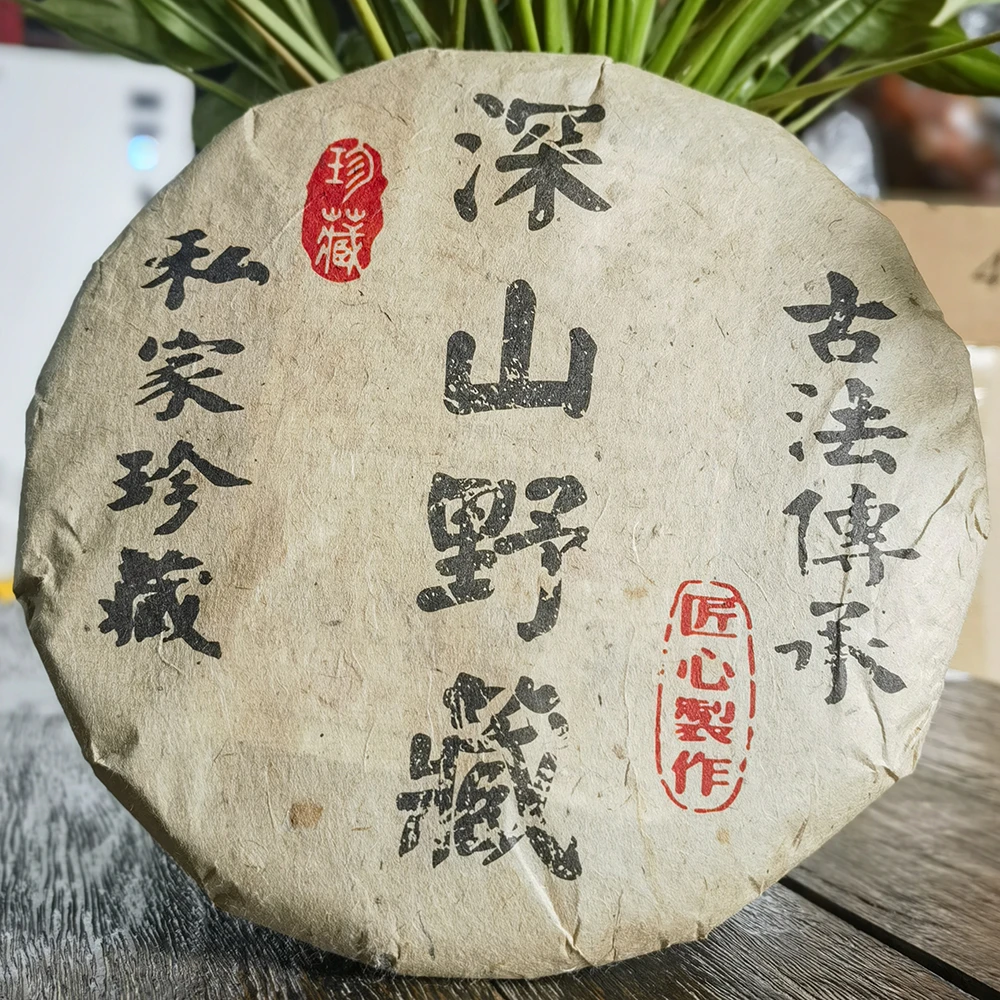 古法傳承
匠心製作
深山野藏
珍藏
私家珍藏